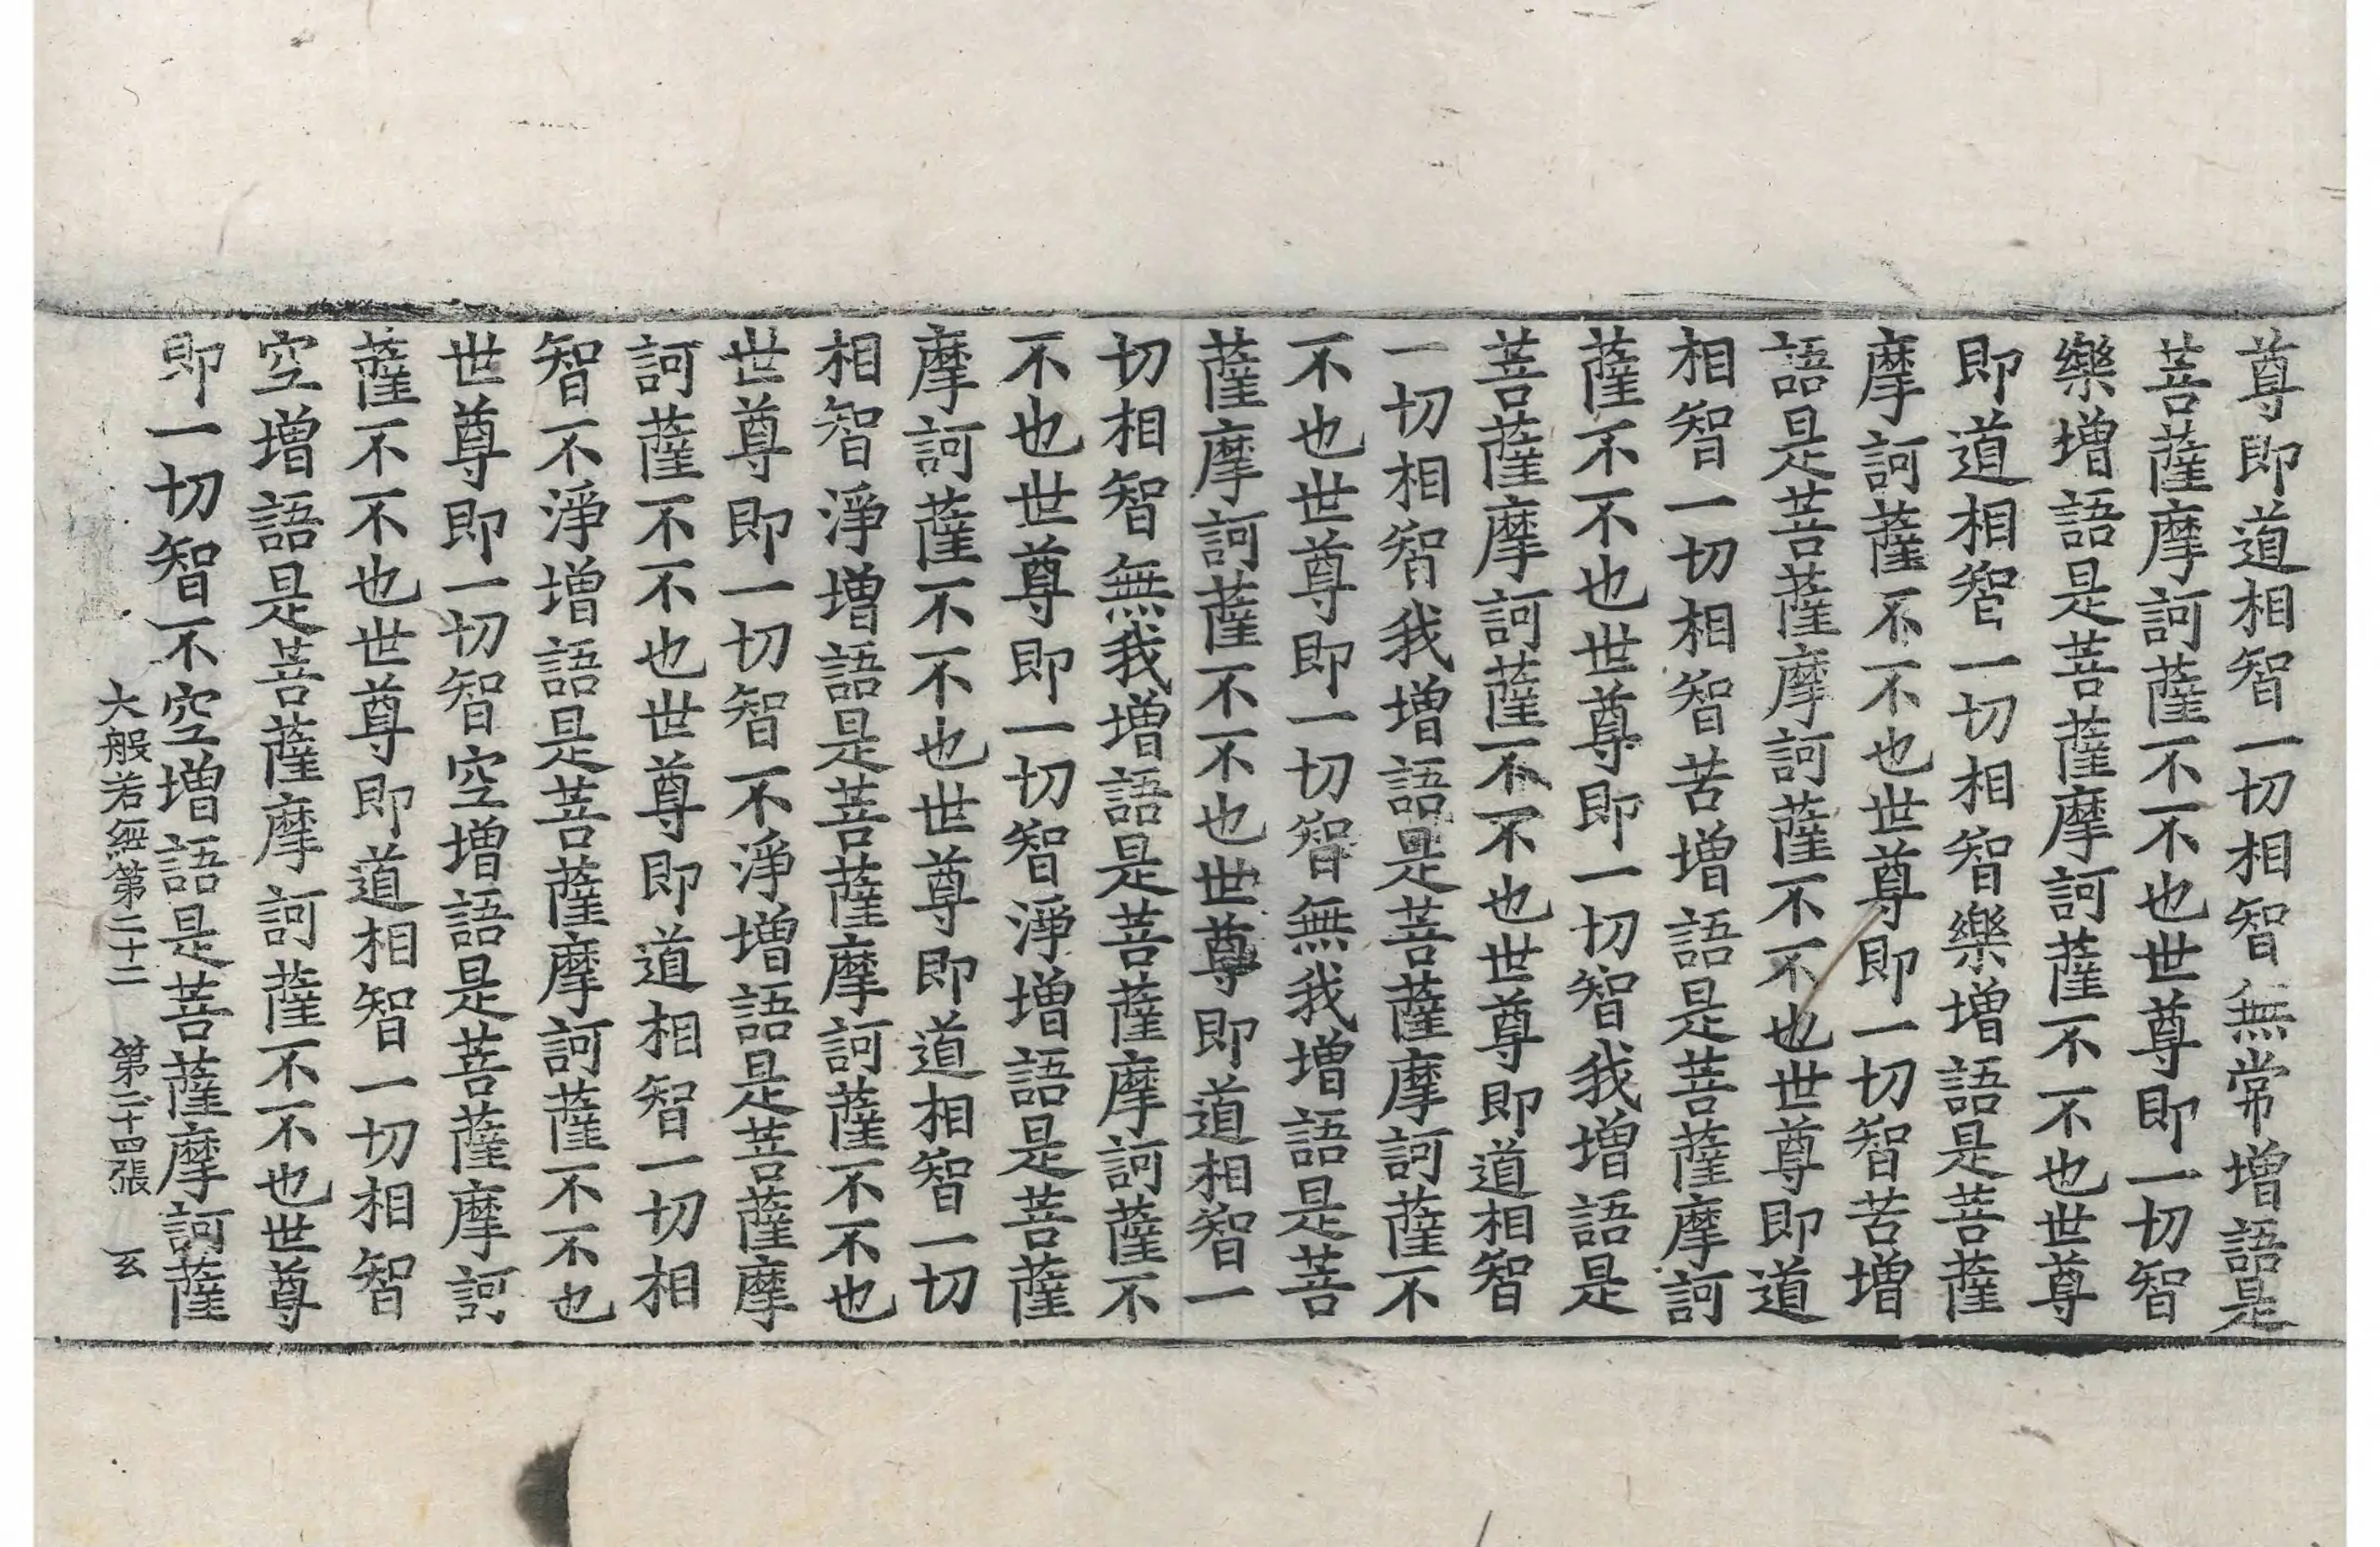 尊即道相智一切相智無常增語是
菩薩摩訶薩不不也世尊即一切智
樂增語是菩薩摩訶薩不不也世尊
即道相智一切相智樂增語是菩薩
摩訶薩不不也世尊即一切智苦增
語是菩薩摩訶薩不不也世尊即道
相智一切相智苦增語是菩薩摩訶
薩不不也世尊即一切智我增語是
菩薩摩訶薩不不也世尊即道相智
一切相智我增語是菩薩摩訶薩不
不也世尊即一切智無我增語是菩
薩摩訶薩不不也世尊即道相智一
切相智無我增語是菩薩摩訶薩不
不也世尊即一切智淨增語是菩薩
摩訶薩不不也世尊即道相智一切
相智淨增語是菩薩摩訶薩不不也
世尊即一切智不淨增語是菩薩摩
訶薩不不也世尊即道相智一切相
智不淨增語是菩薩摩訶薩不不也
世尊即一切智空增語是菩薩摩訶
薩不不也世尊即道相智一切相智
空增語是菩薩摩訶薩不不也世尊
即一切智不空增語是菩薩摩訶薩
大般若經第二十二 第二十四張 玄